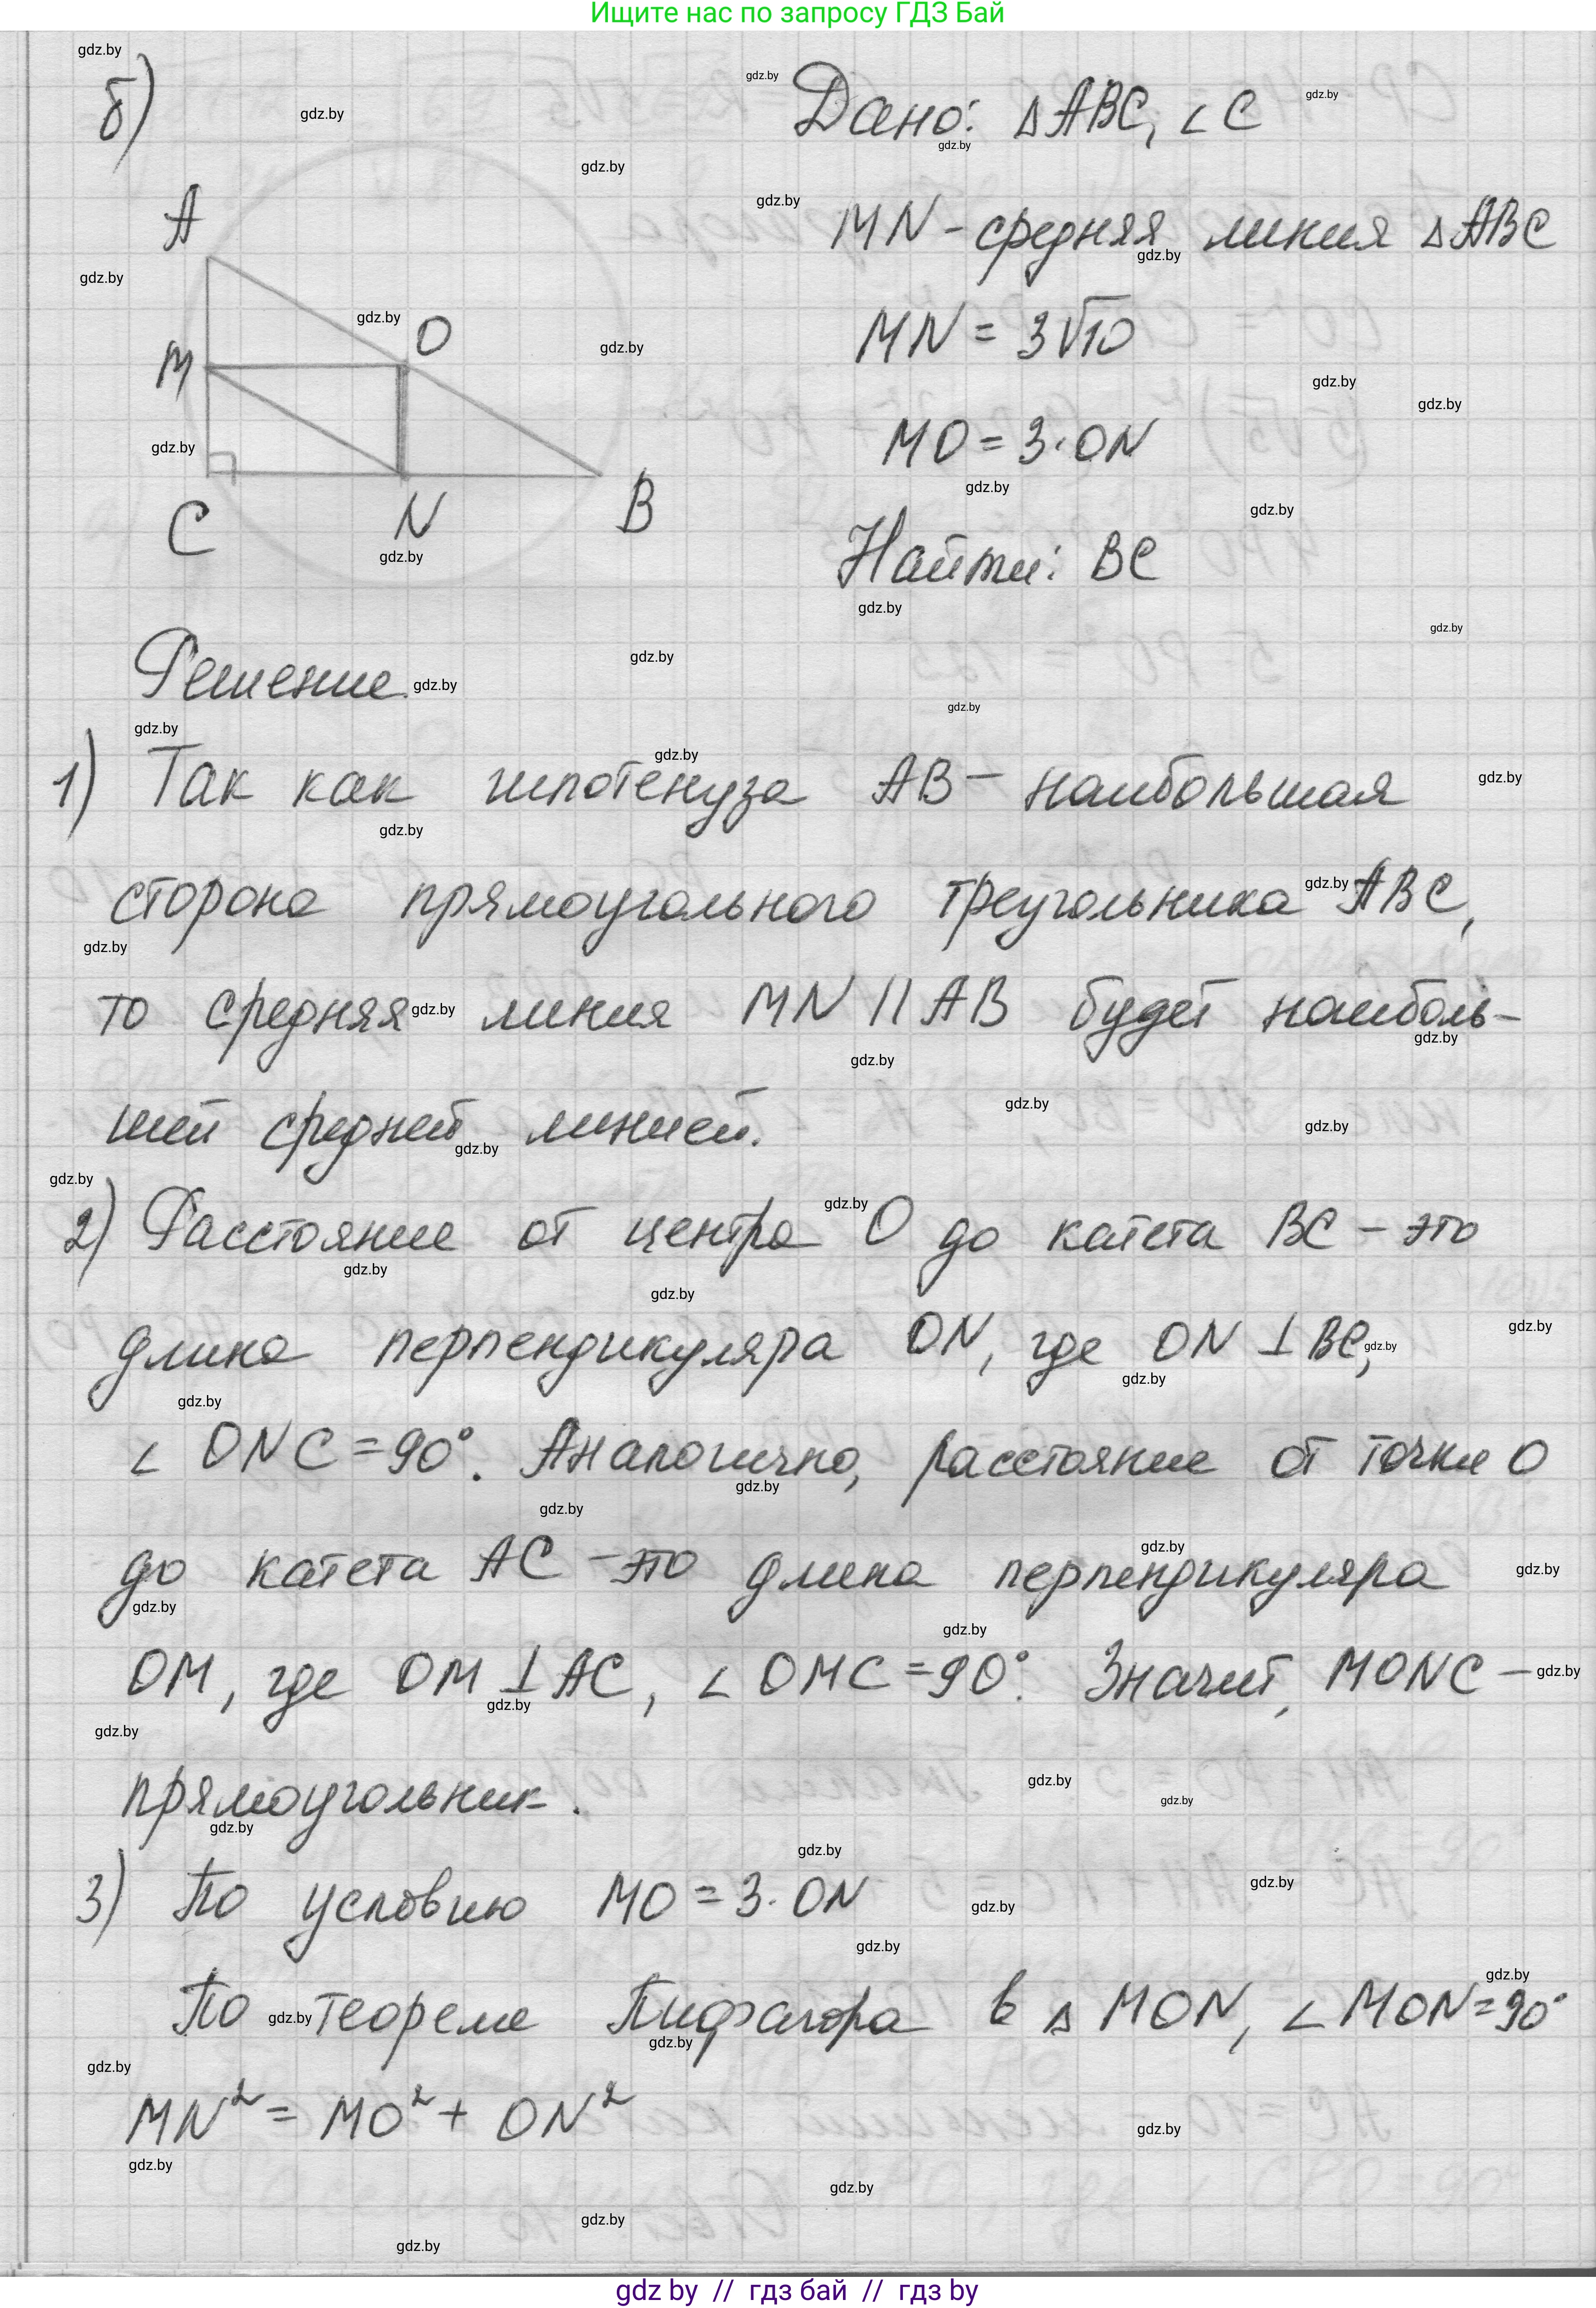 Ищите нас по запросу ГДЗ Бай
б)
Дано: △ABC, ∠C
MN - средняя линия △ABC
MN = 3√10
MO = 3·ON
Найти: BC
A
O
M
C
N
B
Решение.
1) Так как гипотенуза AB - наибольшая
сторона прямоугольного треугольника ABC,
то средняя линия MN || AB будет наиболь-
шей средней линией.
2) Расстояние от центра O до катета BC - это
длина перпендикуляра ON, где ON ⊥ BC,
∠ ONC = 90°. Аналогично, расстояние от точки O
до катета AC - это длина перпендикуляра
OM, где OM ⊥ AC, ∠ OMC = 90°. Значит, MONC -
прямоугольник.
3) По условию MO = 3·ON
По теореме Пифагора в △ MON, ∠ MON = 90°
MN² = MO² + ON²
gdz.by
gdz by // гдз бай // гдз by